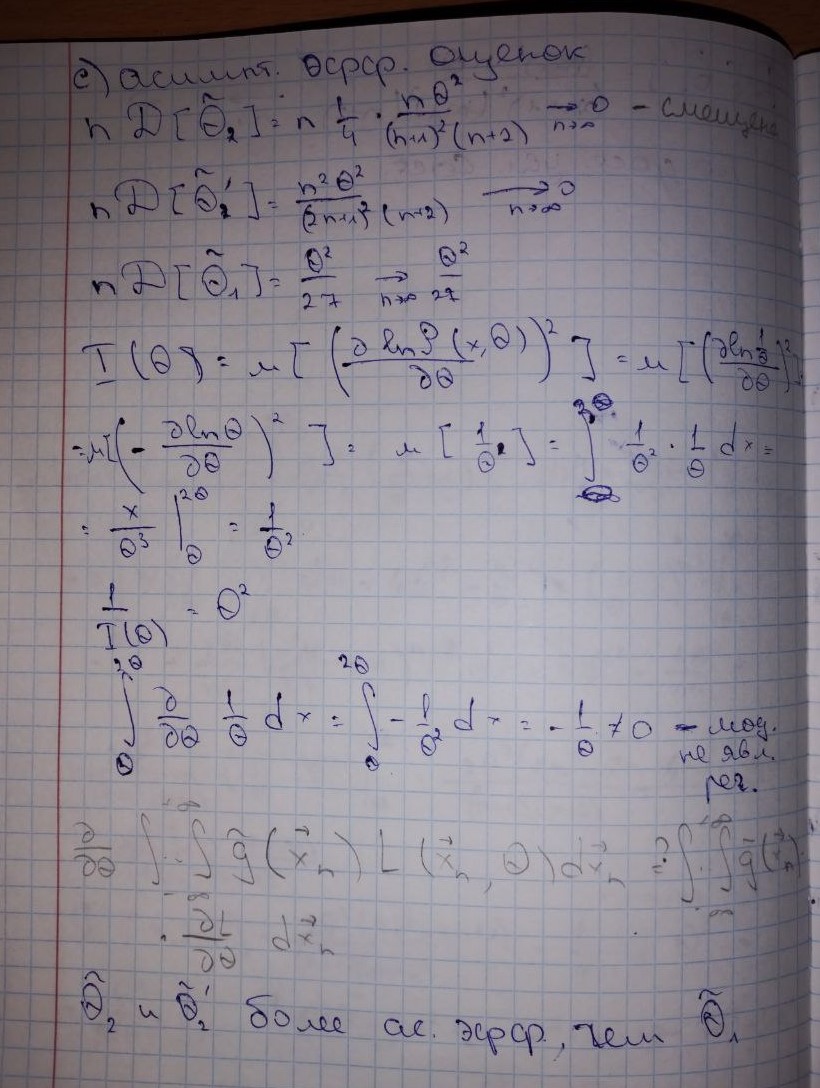 e) асимпт. эфф. оценок
n D[θ̃₂] = n 1/4 · nθ²/((n+1)²(n+2)) →(n→∞) 0 – смещена
n D[θ̃₂'] = n²θ²/((2n+1)²(n+2)) →(n→∞) 0
n D[θ̃₁] = θ²/27 →(n→∞) θ²/27
I(θ) = м[(∂ln P(x,θ)/∂θ)²] = м[(∂ln 1/θ /∂θ)²]
= м[(-∂lnθ/∂θ)²] = м[1/θ²] = ∫ 1/θ² · 1/θ dx =
= x/θ³ |_θ^2θ = 1/θ²
1/I(θ) = θ²
∫_θ^2θ ∂/∂θ 1/θ dx = ∫_θ^2θ -1/θ² dx = -1/θ ≠ 0 – мод.
не явл.
рег.
∂/∂θ ∫..∫ g̃(x⃗ₙ) L(x⃗ₙ, θ) dx⃗ₙ ?= ∫..∫ g̃(x⃗ₙ)
· ∂L/∂θ dx⃗ₙ
θ̃₂ и θ̃₂' более ас. эфф., чем θ̃₁